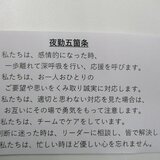 夜勤五箇条
私たちは、感情的になった時、
一歩離れて深呼吸を行い、応援を呼びます。
私たちは、お一人おひとりの
ご要望や思いをくみ取り誠実に対応します。
私たちは、適切と思わない対応を見た場合は、
お互いにその場で勇気をもって注意します。
私たちは、チームでケアをしています。
判断に迷った時は、リーダーに相談し、皆で解決し
私たちは、忙しい時ほど優しい心を忘れません。